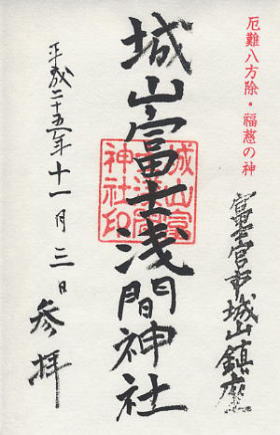 厄難八方除・福慈の神
富士宮市城山鎮座
城山富士浅間神社
城山富
士浅間
神社印
平成二十五年十一月三日
参拝